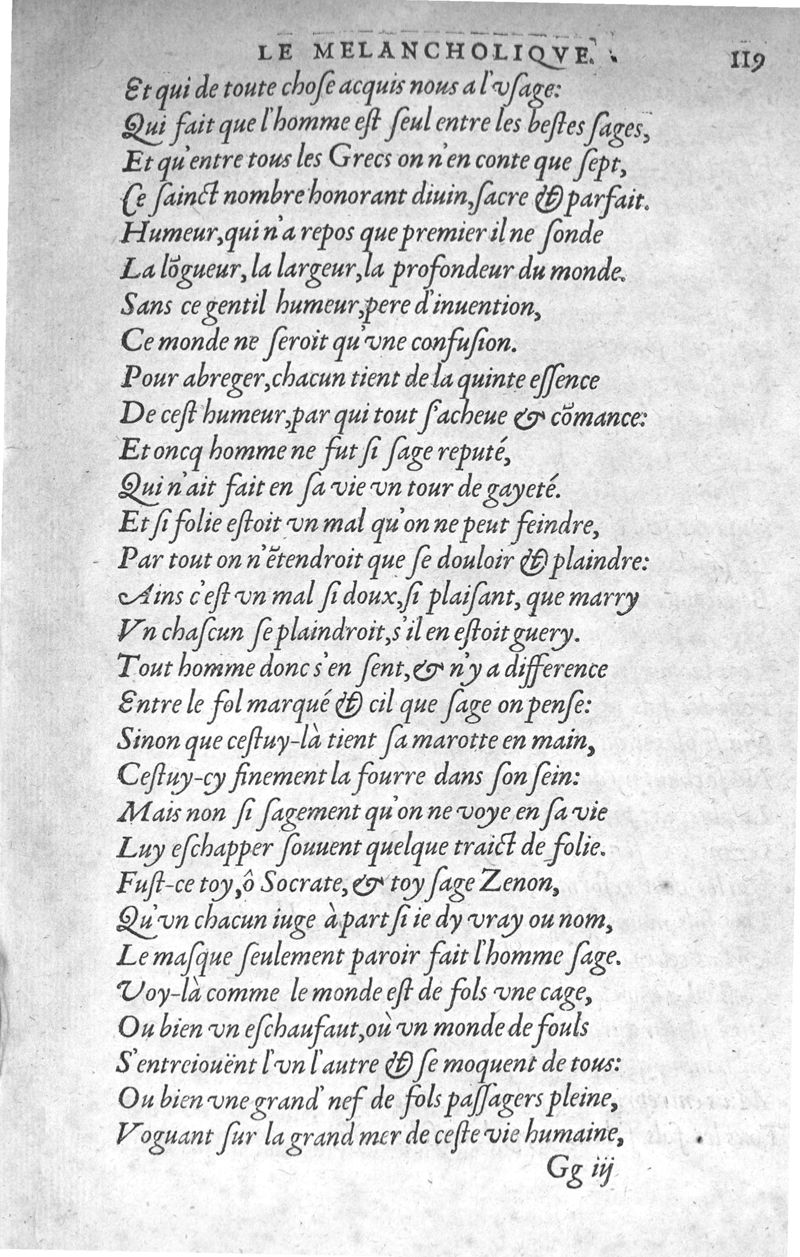 LE MELANCHOLIQVE. 119
Et qui de toute choſe acquis nous a l'vſage:
Qui fait que l'homme eſt ſeul entre les beſtes ſages,
Et qu'entre tous les Grecs on n'en conte que ſept,
Ce ſainct nombre honorant diuin, ſacre & parfait.
Humeur, qui n'a repos que premier il ne ſonde
La lõgueur, la largeur, la profondeur du monde.
Sans ce gentil humeur, pere d'inuention,
Ce monde ne ſeroit qu'vne confuſion.
Pour abreger, chacun tient de la quinte eſſence
De ceſt humeur, par qui tout s'acheue & cõmance:
Et oncq homme ne fut ſi ſage reputé,
Qui n'ait fait en ſa vie vn tour de gayeté.
Et ſi folie eſtoit vn mal qu'on ne peut feindre,
Par tout on n'ẽtendroit que ſe douloir & plaindre:
Ains c'eſt vn mal ſi doux, ſi plaiſant, que marry
Vn chaſcun ſe plaindroit, s'il en eſtoit guery.
Tout homme donc s'en ſent, & n'y a difference
Entre le fol marqué & cil que ſage on penſe:
Sinon que ceſtuy-là tient ſa marotte en main,
Ceſtuy-cy finement la fourre dans ſon ſein:
Mais non ſi ſagement qu'on ne voye en ſa vie
Luy eſchapper ſouuent quelque traict de folie.
Fuſt-ce toy, ô Socrate, & toy ſage Zenon,
Qu'vn chacun iuge à part ſi ie dy vray ou nom,
Le maſque ſeulement paroir fait l'homme ſage.
Voy-là comme le monde eſt de fols vne cage,
Ou bien vn eſchaufaut, où vn monde de fouls
S'entreiouënt l'vn l'autre & ſe moquent de tous:
Ou bien vne grand' nef de fols paſſagers pleine,
Voguant ſur la grand mer de ceſte vie humaine,
Gg iij